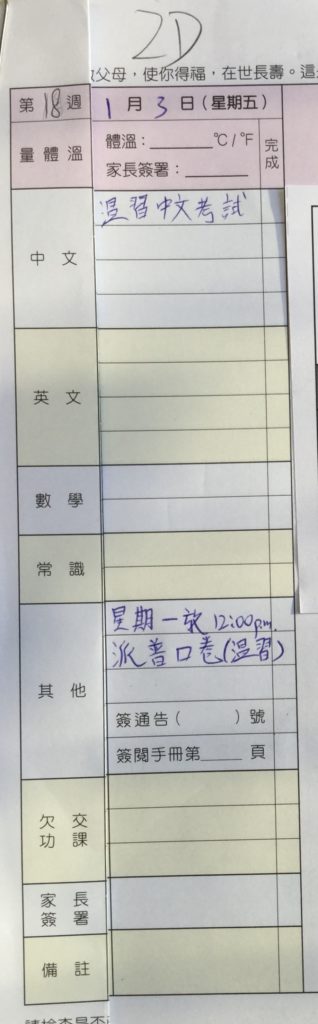 2D
父母，使你得福，在世長壽。這
第18週 1月3日(星期五)
量體溫 體溫：______℃/℉ 完成
家長簽署：______
中文 溫習中文考試
英文
數學
常識
其他 星期一放12:00p.m.
派普口卷(溫習)
簽通告( )號
簽閱手冊第____頁
欠交功課
家長簽署
備註